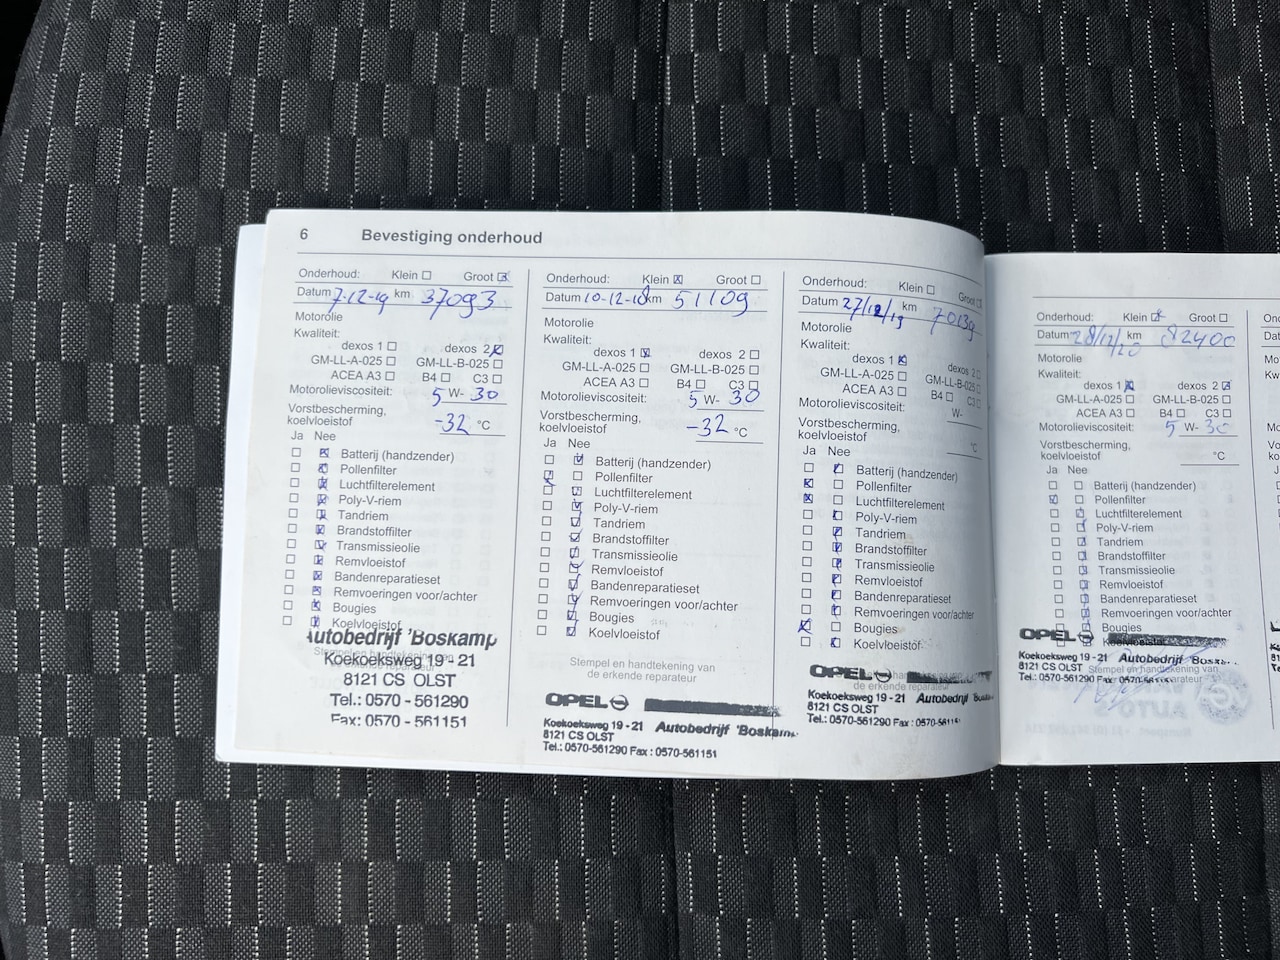 6 Bevestiging onderhoud
Onderhoud: Klein Groot
Datum 7-12-19 km 37093
Motorolie
Kwaliteit:
dexos 1 dexos 2
GM-LL-A-025 GM-LL-B-025
ACEA A3 B4 C3
Motorolieviscositeit: 5 W- 30
Vorstbescherming,
koelvloeistof -32 °C
Ja Nee
Batterij (handzender)
Pollenfilter
Luchtfilterelement
Poly-V-riem
Tandriem
Brandstoffilter
Transmissieolie
Remvloeistof
Bandenreparatieset
Remvoeringen voor/achter
Bougies
Koelvloeistof
Autobedrijf 'Boskamp
Koekoeksweg 19 - 21
8121 CS OLST
Tel.: 0570 - 561290
Fax: 0570 - 561151
Onderhoud: Klein Groot
Datum 10-12-18 km 51109
Motorolie
Kwaliteit:
dexos 1 dexos 2
GM-LL-A-025 GM-LL-B-025
ACEA A3 B4 C3
Motorolieviscositeit: 5 W- 30
Vorstbescherming,
koelvloeistof -32 °C
Ja Nee
Batterij (handzender)
Pollenfilter
Luchtfilterelement
Poly-V-riem
Tandriem
Brandstoffilter
Transmissieolie
Remvloeistof
Bandenreparatieset
Remvoeringen voor/achter
Bougies
Koelvloeistof
Stempel en handtekening van
de erkende reparateur
OPEL
Koekoeksweg 19 - 21 Autobedrijf 'Boskamp
8121 CS OLST
Tel.: 0570-561290 Fax : 0570-561151
Onderhoud: Klein Groot
Datum 27/12/19 km 70139
Motorolie
Kwaliteit:
dexos 1 dexos 2
GM-LL-A-025 GM-LL-B-025
ACEA A3 B4 C3
Motorolieviscositeit: W-
Vorstbescherming,
koelvloeistof °C
Ja Nee
Batterij (handzender)
Pollenfilter
Luchtfilterelement
Poly-V-riem
Tandriem
Brandstoffilter
Transmissieolie
Remvloeistof
Bandenreparatieset
Remvoeringen voor/achter
Bougies
Koelvloeistof
de erkende reparateur
OPEL
Koekoeksweg 19 - 21 Autobedrijf 'Boskamp
8121 CS OLST
Tel.: 0570-561290 Fax : 0570-56115
Onderhoud: Klein Groot
Datum 28/12/20 km 82400
Motorolie
Kwaliteit:
dexos 1 dexos 2
GM-LL-A-025 GM-LL-B-025
ACEA A3 B4 C3
Motorolieviscositeit: 5 W- 30
Vorstbescherming,
koelvloeistof °C
Ja Nee
Batterij (handzender)
Pollenfilter
Luchtfilterelement
Poly-V-riem
Tandriem
Brandstoffilter
Transmissieolie
Remvloeistof
Bandenreparatieset
Remvoeringen voor/achter
Bougies
Koelvloeistof
OPEL
Koekoeksweg 19 - 21 Autobedrijf
8121 CS OLST Stempel en handtekening van
Tel.: 0570-561290